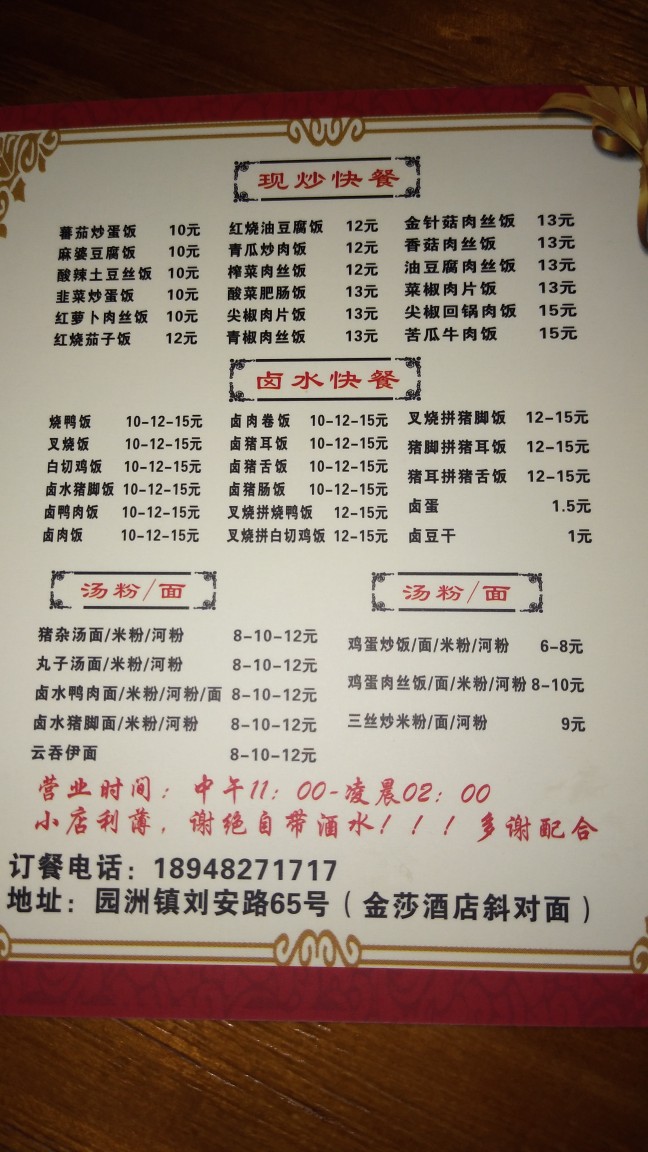 现炒快餐
蕃茄炒蛋饭 10元
麻婆豆腐饭 10元
酸辣土豆丝饭 10元
韭菜炒蛋饭 10元
红萝卜肉丝饭 10元
红烧茄子饭 12元
红烧油豆腐饭 12元
青瓜炒肉饭 12元
榨菜肉丝饭 12元
酸菜肥肠饭 13元
尖椒肉片饭 13元
青椒肉丝饭 13元
金针菇肉丝饭 13元
香菇肉丝饭 13元
油豆腐肉丝饭 13元
菜椒肉片饭 13元
尖椒回锅肉饭 15元
苦瓜牛肉饭 15元
卤水快餐
烧鸭饭 10-12-15元
叉烧饭 10-12-15元
白切鸡饭 10-12-15元
卤水猪脚饭 10-12-15元
卤鸭肉饭 10-12-15元
卤肉饭 10-12-15元
卤肉卷饭 10-12-15元
卤猪耳饭 10-12-15元
卤猪舌饭 10-12-15元
卤猪肠饭 10-12-15元
叉烧拼烧鸭饭 12-15元
叉烧拼白切鸡饭 12-15元
叉烧拼猪脚饭 12-15元
猪脚拼猪耳饭 12-15元
猪耳拼猪舌饭 12-15元
卤蛋 1.5元
卤豆干 1元
汤粉/面
猪杂汤面/米粉/河粉 8-10-12元
丸子汤面/米粉/河粉 8-10-12元
卤水鸭肉面/米粉/河粉/面 8-10-12元
卤水猪脚面/米粉/河粉 8-10-12元
云吞伊面 8-10-12元
汤粉/面
鸡蛋炒饭/面/米粉/河粉 6-8元
鸡蛋肉丝饭/面/米粉/河粉 8-10元
三丝炒米粉/面/河粉 9元
营业时间：中午11：00-凌晨02：00
小店利薄，谢绝自带酒水！！！多谢配合
订餐电话：18948271717
地址：园洲镇刘安路65号（金莎酒店斜对面）